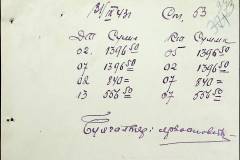 21/IX 43г. Сп. 53
Дт Сумма Кт Сумма
02. 1396 50 05 1396 50
07 1396 50 02 1396 50
02 840 = 07 840 =
13 556 50 07 556 50
Бухгалтер: